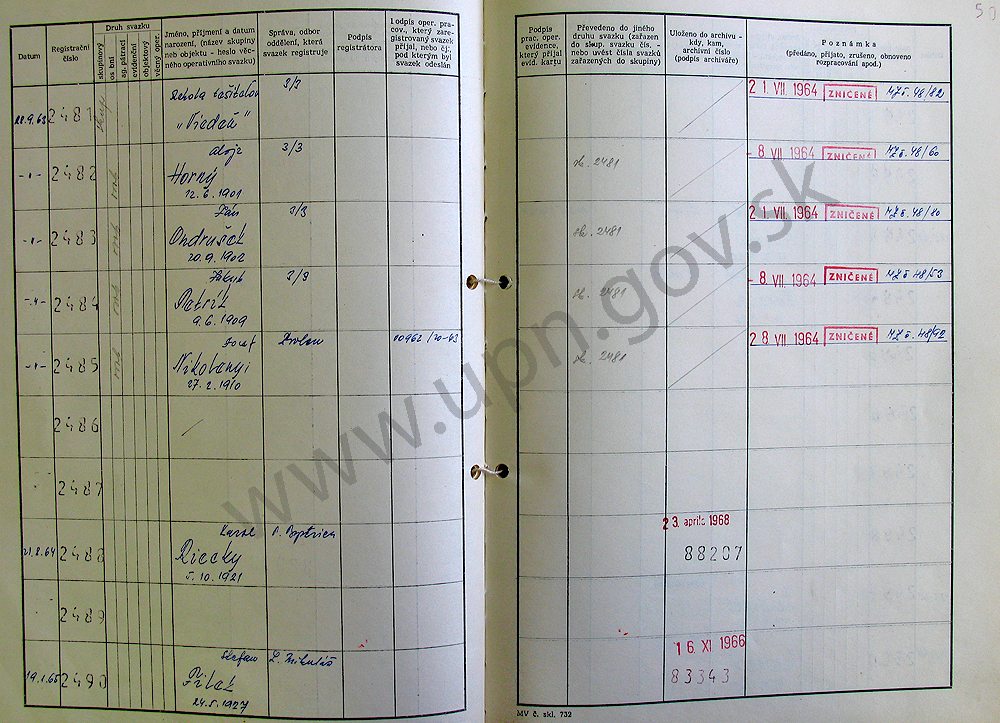 50
Datum
Registrační číslo
Druh svazku
skupinový
os bní
ag. pátrací
evidenční
objektový
věcný oper.
Jméno, příjmení a datum
narození, (název skupiny
neb objektu - heslo věc-
ného operativního svazku)
Správa, odbor
oddělení, která
svazek registruje
Podpis
registrátora
Podpis oper. pra-
cov., který zare-
gistrovaný svazek
přijal, nebo čj.,
pod kterým byl
svazek odeslán
Podpis
prac. oper.
evidence,
který přijal
evid. kartu
Převedeno do jiného
druhu svazku (zařazen
do skup. svazku čís. -
nebo uvést čísla svazků
zařazených do skupiny)
Uloženo do archivu -
kdy, kam,
archivní číslo
(podpis archiváře)
Poznámka
(předáno, přijato, zrušeno, obnoveno
rozpracování apod.)
2481 "Viedeň" 3/3 2 1. VII. 1964 ZNIČENÉ 48/82
-"- 2482 Alojz Horný 12.6.1901 3/3 sk. 2481 - 8 VII 1964 ZNIČENÉ 48/60
-"- 2483 Ján Ondrušek 20.9.1902 3/3 sk. 2481 2 1. VII. 1964 ZNIČENÉ 48/80
-"- 2484 Petrík 9.6.1909 3/3 sk. 2481 - 8. VII. 1964 ZNIČENÉ 48/53
-"- 2485 Jozef Nikolényi 27.2.1910 Zvolen sk. 2481 2 8 VII 1964 ZNIČENÉ 48/92
2486
2487
21.8.64 2488 Karol Riecky 5.10.1921 P. Bystrica 2 3. apríla 1968 88207
2489
19.1.65 2490 Štefan Pilát 24.5.1927 L. Mikuláš 1 6. XI 1966 83343
MV č. skl. 732
www.upn.gov.sk